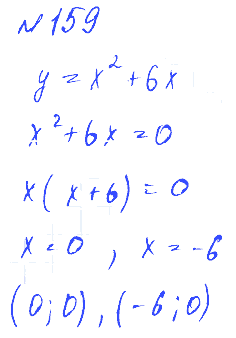 №159
y = x² + 6x
x² + 6x = 0
x(x+6) = 0
x = 0, x = -6
(0;0), (-6;0)